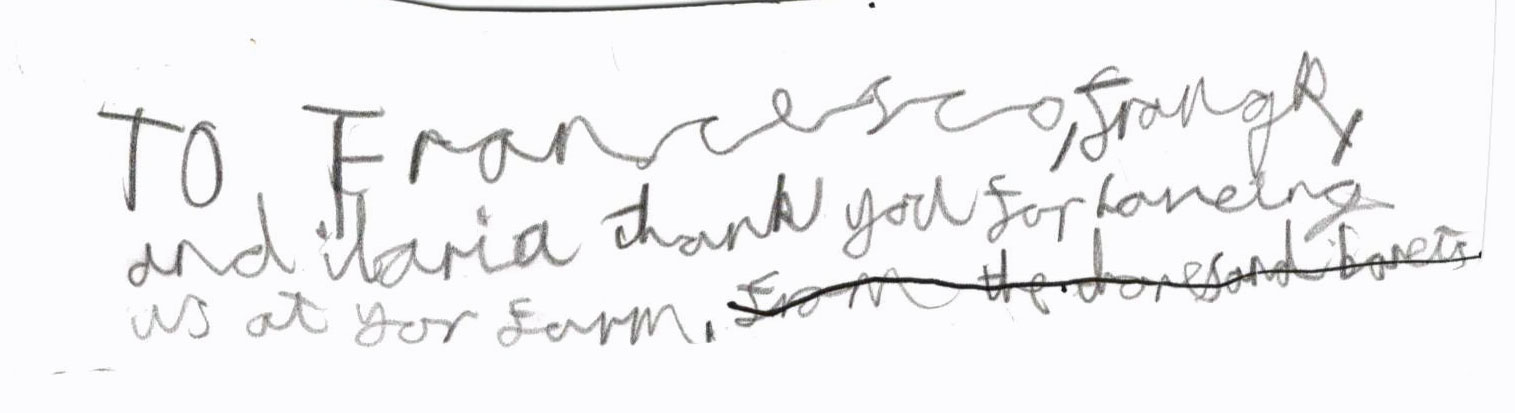 To Francesco, frangk,
and ilaria thank you for haveing
us at yor farm. from the